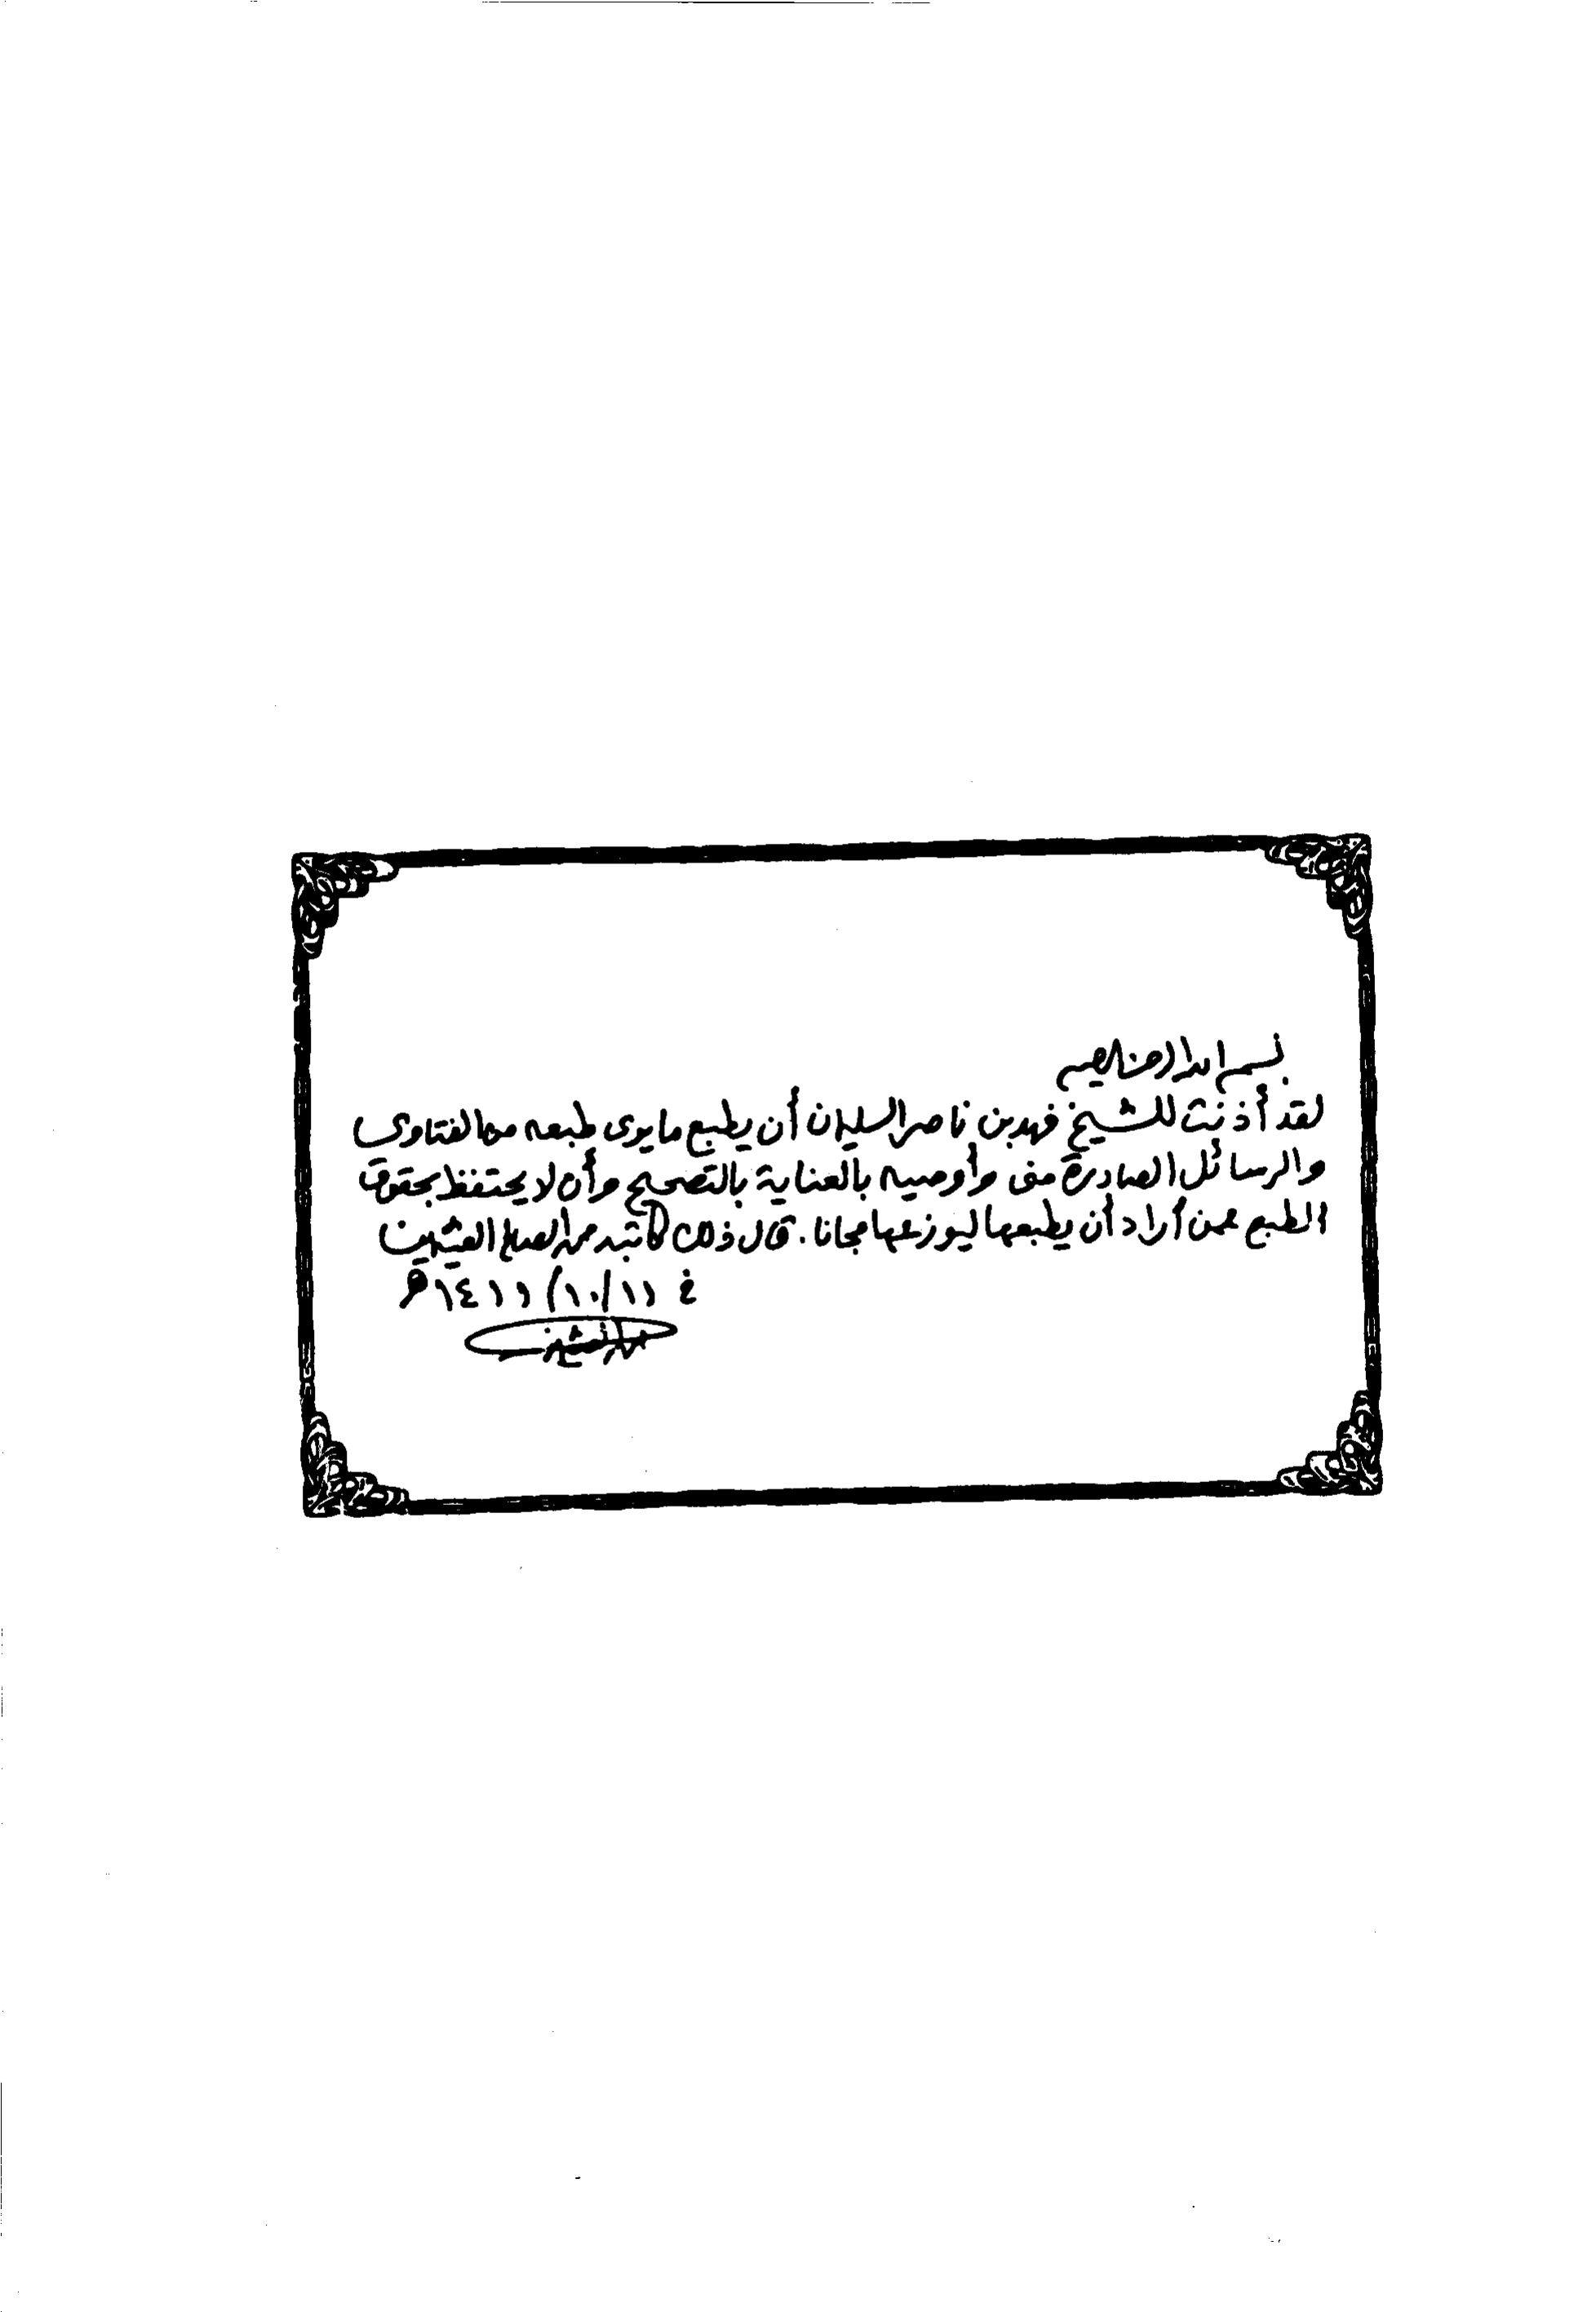 بسم الله الرحمن الرحيم
لقد أذنت للشيخ فهد بن ناصر السليمان أن يطبع ما يرى طبعه من الفتاوى
والرسائل الصادرة مني وأوصيه بالعناية بالتصحيح وأن لا يحتفظ بحقوق
الطبع عمن أراد أن يطبعها ليوزعها مجانا. قال ذلك كاتبه محمد الصالح العثيمين
في ١١/١٠/١٤١١هـ
محمد العثيمين